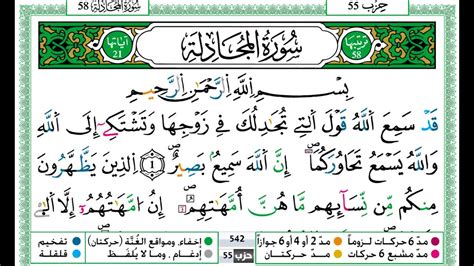 حزب 55
سورة المجادلة 58
ترتيبها 58
سُورَةُ المُجَادلة
آياتها 21
بِسْمِ اللَّهِ الرَّحْمَٰنِ الرَّحِيمِ
قَدْ سَمِعَ اَللَّهُ قَوْلَ اَلتِے تُجَٰدِلُكَ فِي زَوْجِهَا وَتَشْتَكِےٓ إِلَى اَللَّهِ
وَاللَّهُ يَسْمَعُ تَحَاوُرَكُمَآ إِنَّ اَللَّهَ سَمِيعٌۢ بَصِيرٌ ١ اِلذِينَ يَظَّهَّرُونَ
مِنكُم مِّن نِّسَآئِهِم مَّا هُنَّ أُمَّهَٰتِهِمُۥٓ إِنُ امَّهَٰتُهُمُۥٓ إِلَّا اَلَٰٓے
مدّ 6 حركات لزوماً
مدّ 2 أو 4 أو 6 جوازاً
542
إخفاء، ومواقع الغُنَّة (حركتان)
تفخيم
مدّ مشبع 6 حركات
مدّ حركتان
حزب 55
إدغام، وما لا يُلفَظ
قلقلة